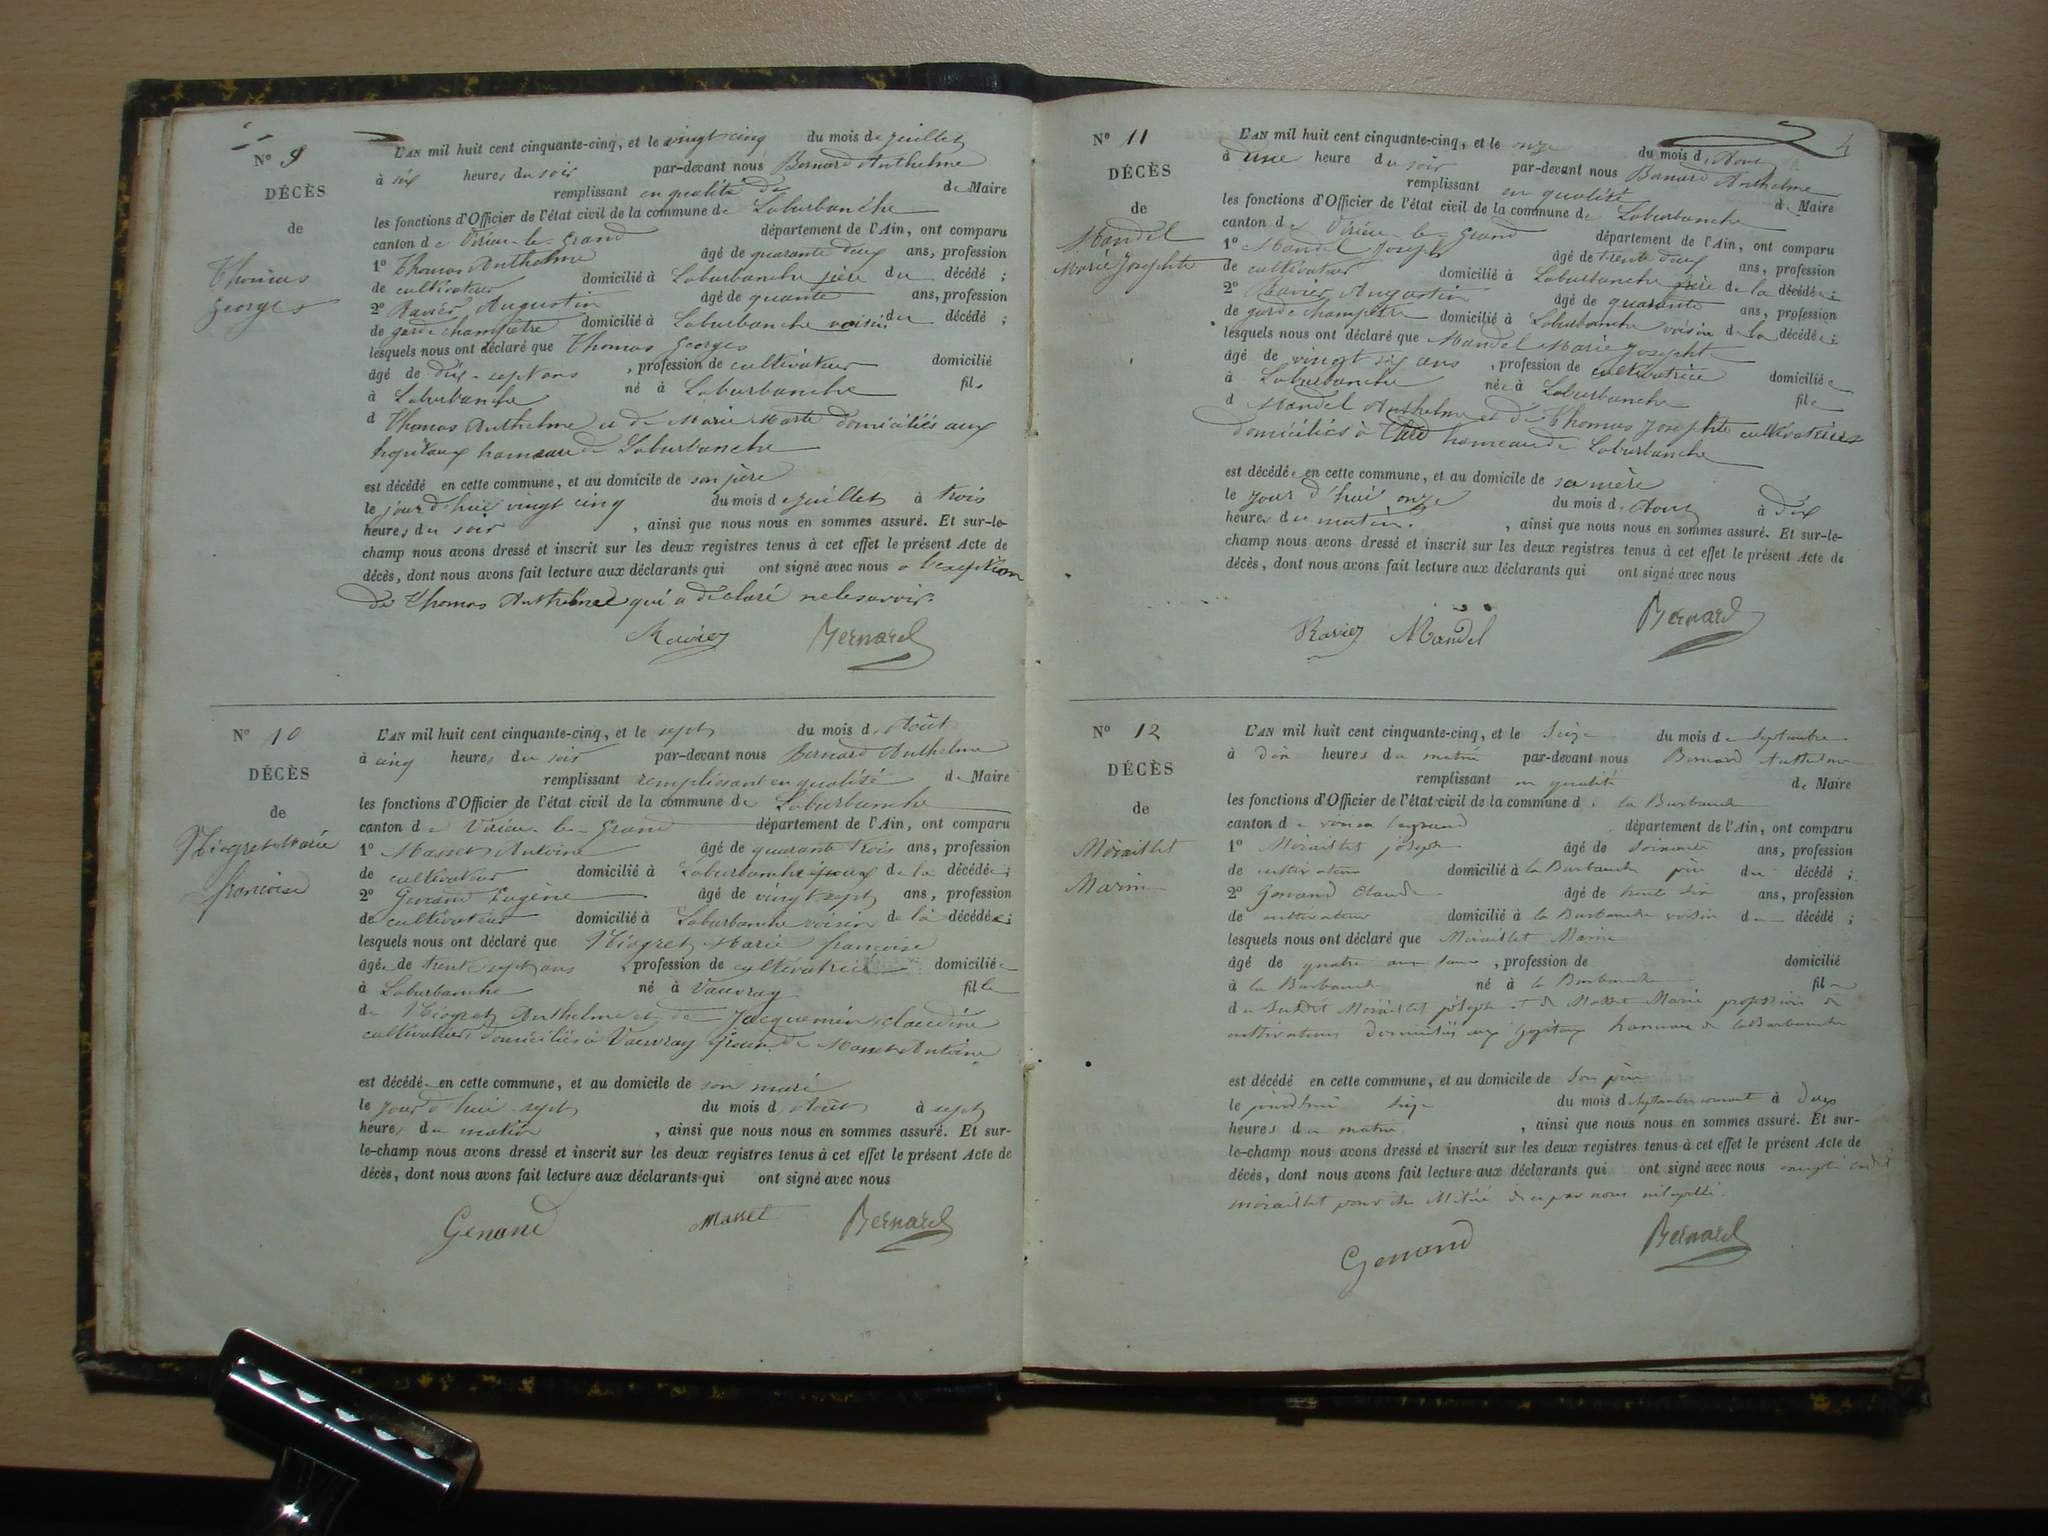 N° 9
DÉCÈS
de
Thomas
Georges
L'AN mil huit cent cinquante-cinq, et le vingt cinq du mois de juillet
à six heures du soir par-devant nous Bernard Anthelme
remplissant en qualité de de Maire
les fonctions d'Officier de l'état civil de la commune de Laburbanche
canton de Virieu-le-Grand département de l'Ain, ont comparu
1° Thomas Anthelme âgé de quarante deux ans, profession
de cultivateur domicilié à Laburbanche père du décédé ;
2° Ravier Augustin âgé de quarante ans, profession
de garde champêtre domicilié à Laburbanche voisin du décédé ;
lesquels nous ont déclaré que Thomas Georges
âgé de dix-sept ans , profession de cultivateur domicilié
à Laburbanche né à Laburbanche fils
d Thomas Anthelme et de Marie Marte domiciliés aux
hopitaux hameau de Laburbanche
est décédé en cette commune, et au domicile de son père
le jour d'hui vingt cinq du mois de juillet à trois
heures du soir , ainsi que nous nous en sommes assuré. Et sur-le-
champ nous avons dressé et inscrit sur les deux registres tenus à cet effet le présent Acte de
décès, dont nous avons fait lecture aux déclarants qui ont signé avec nous à l'exception
de Thomas Anthelme qui a déclaré ne le savoir.
Ravier Bernard
N° 10
DÉCÈS
de
Niogret Marie
françoise
L'AN mil huit cent cinquante-cinq, et le sept du mois d Août
à cinq heures du soir par-devant nous Bernard Anthelme
remplissant remplissant en qualité de Maire
les fonctions d'Officier de l'état civil de la commune de Laburbanche
canton de Virieu-le-Grand département de l'Ain, ont comparu
1° Masset Antoine âgé de quarante trois ans, profession
de cultivateur domicilié à Laburbanche époux de la décédée ;
2° Genand Eugène âgé de vingt sept ans, profession
de cultivateur domicilié à Laburbanche voisin de la décédée ;
lesquels nous ont déclaré que Niogret Marie françoise
âgée de trente sept ans , profession de cultivatrice domiciliée
à Laburbanche né à Vauvray fille
de Niogret Anthelme et de Jacquemin claudine
cultivateurs domiciliés à Vauvray de Masset Antoine
est décédé en cette commune, et au domicile de son mari
le jour d'hui sept du mois d Août à sept
heures du matin , ainsi que nous nous en sommes assuré. Et sur-
le-champ nous avons dressé et inscrit sur les deux registres tenus à cet effet le présent Acte de
décès, dont nous avons fait lecture aux déclarants qui ont signé avec nous
Genand Masset Bernard
4
N° 11
DÉCÈS
de
Mandel
Marie Josephte
L'AN mil huit cent cinquante-cinq, et le onze du mois d Aout
à une heure du soir par-devant nous Bernard Anthelme
remplissant en qualité de Maire
les fonctions d'Officier de l'état civil de la commune de Laburbanche
canton de Virieu-le-Grand département de l'Ain, ont comparu
1° Mandel Joseph âgé de trente deux ans, profession
de cultivateur domicilié à Laburbanche frère de la décédée ;
2° Ravier Augustin âgé de quarante ans, profession
de garde champêtre domicilié à Laburbanche voisin de la décédée ;
lesquels nous ont déclaré que Mandel Marie Josephte
âgé de vingt six ans , profession de cultivatrice domiciliée
à Laburbanche née à Laburbanche file
d Mandel Anthelme et de Thomas Josephte cultivateurs
domiciliés à hameau de Laburbanche
est décédée en cette commune, et au domicile de sa mère
le jour d'hui onze du mois d Aout à dix
heures du matin. , ainsi que nous nous en sommes assuré. Et sur-le-
champ nous avons dressé et inscrit sur les deux registres tenus à cet effet le présent Acte de
décès, dont nous avons fait lecture aux déclarants qui ont signé avec nous
Ravier Mandel Bernard
N° 12
DÉCÈS
de
Moiraillet
Marin
L'AN mil huit cent cinquante-cinq, et le Seize du mois de Septembre
à dix heures du matin par-devant nous Bernard Anthelme
remplissant en qualité de Maire
les fonctions d'Officier de l'état civil de la commune de la Burbanche
canton de virieu legrand département de l'Ain, ont comparu
1° Moiraillet joseph âgé de soixante ans, profession
de cultivateur domicilié à la Burbanche père du décédé ;
2° Genand Claude âgé de trente six ans, profession
de cultivateur domicilié à la Burbanche voisin du décédé ;
lesquels nous ont déclaré que Moiraillet Marin
âgé de quatre ans , profession de domicilié
à la Burbanche né à la Burbanche fils
du susdit Moiraillet joseph et de Masset Marie profession de
cultivateurs domiciliés aux hopitaux hameau de la Burbanche
est décédé en cette commune, et au domicile de son père
le jourd'hui Seize du mois de Septembre courant à deux
heures du matin , ainsi que nous nous en sommes assuré. Et sur-
le-champ nous avons dressé et inscrit sur les deux registres tenus à cet effet le présent Acte de
décès, dont nous avons fait lecture aux déclarants qui ont signé avec nous excepté
moiraillet pour de par nous
Genand Bernard